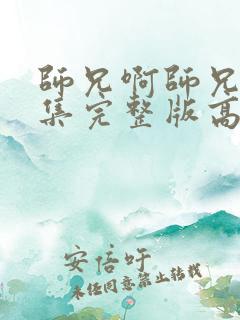 師兄啊師兄
集完整版高
安倍吁
未经同意禁止转载